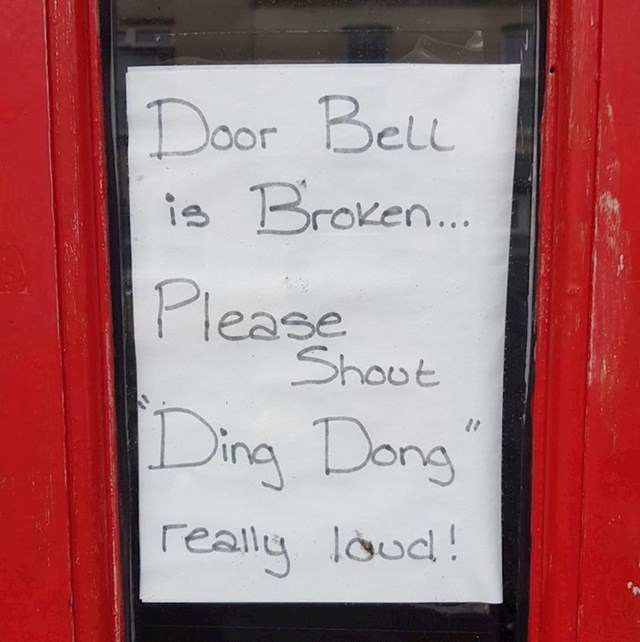 Door Bell
is Broken...
Please
Shout
"Ding Dong"
really loud!